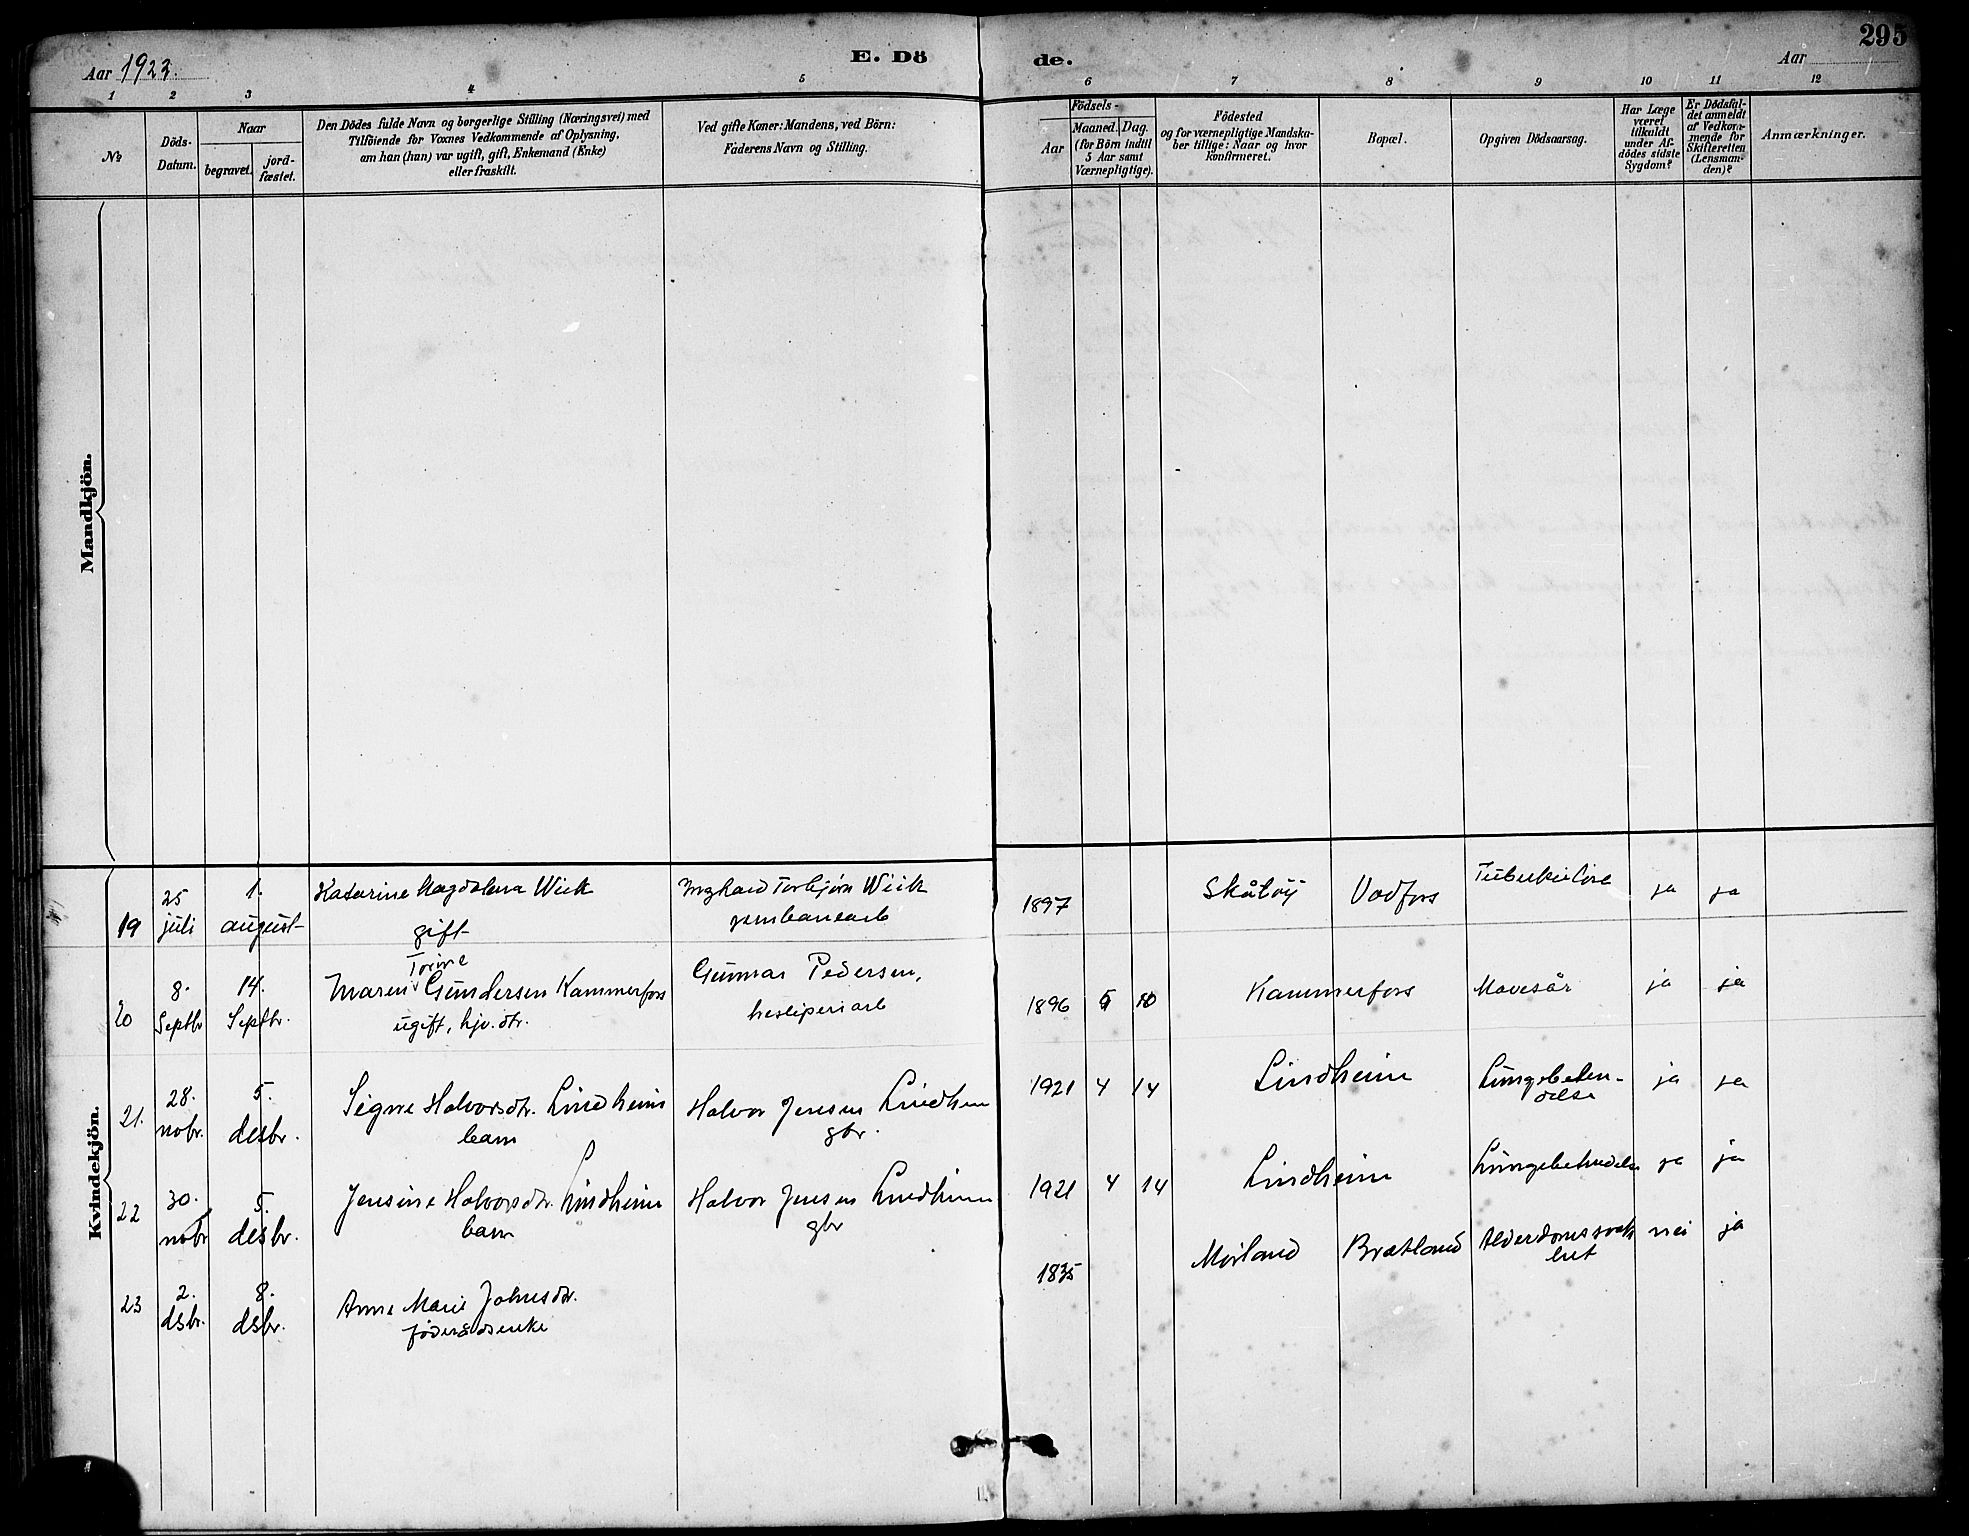 295
Aar 1923.
E. Dö
de.
Aar
1 2 3 4 5 6 7 8 9 10 11 12
№
Döds-
Datum.
Naar
begravet.
jord-
fæstet.
Den Dödes fulde Navn og borgerlige Stilling (Næringsvei) med
Tilföiende for Voxnes Vedkommende af Oplysning,
om han (hun) var ugift, gift, Enkemand (Enke)
eller fraskilt.
Ved gifte Koner: Mandens, ved Börn:
Faderens Navn og Stilling.
Födsels-
Aar
Maaned. Dag.
(for Börn indtil
5 Aar samt
Værnepligtige).
Födested
og for værnepligtige Mandska-
ber tillige: Naar og hvor
konfirmeret.
Bopæl.
Opgiven Dödsaarsag.
Har Læge
været
tilkaldt
under Af-
dödes sidste
Sygdom?
Er Dödsfal-
det anmeldt
af Vedkom-
mende for
Skifteretten
(Lensman-
den)?
Anmærkninger.
Mandkjön.
Kvindekjön.
19
25
juli
1.
august
Katarine Magdalena Wiik
gift
Torbjørn Wiik
1897
Skåtöy
Vadfos
ja
ja
20
8.
Septbr
14.
Septbr.
Trine
Maren Gundersen Kammerfos
ugift, hjv. dtr.
Gunnar Pedersen,
1896
Kammerfos
Mavesår
ja
ja
21.
28.
nobr.
5.
desbr.
Signe Halvorsdtr. Lindheim
barn
Halvor Jensen Lindheim
gbr.
1921 4 14
Lindheim
Lungebeten-
delse
ja
ja
22
30.
nobr
5.
desbr.
Jensine Halvorsdtr. Lindheim
barn
Halvor Jensen Lindheim
gbr
1921 4 14
Lindheim
Lungebetendelse
ja
ja
23
2.
dsbr.
8.
dsbr.
Anne Marie Johnsdtr.
føderådsenke
1835
Mörland
Brætland
Alderdomssvak
het
nei
ja